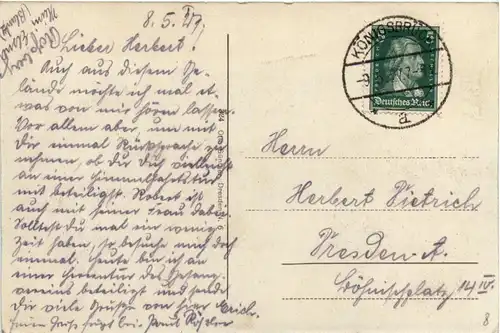 8. 5. 27.
Lieber Herbert!
Auch aus diesem Ge-
lände möchte ich mal et-
was von mir hören lassen.
Vor allem aber, um mit
Dir einmal Rücksprache zu
nehmen, ob Du Dich vielleicht
an einer Himmelfahrtstur
mit beteiligst. Robert ist
auch mit seiner Frau dabei.
Solltest Du mal ein wenig
Zeit haben, so besuche mich doch
einmal. Heute bin ich an
einer des Gesang-
vereins beteiligt und sende
Dir viele Grüße von hier Erich.
Paul
KÖNIGSBRÜCK
a
Deutsches Reich
Dresden
Herrn
Herbert Dietrich
Dresden-A.
Böhnischplatz 14 IV.
8